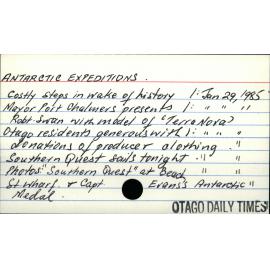 ANTARCTIC EXPEDITIONS.
Costly steps in wake of history 1: Jan 29, 1985
Mayor Port Chalmers presents 1: " " "
Robt Swan with model of "Terra Nova"
Otago residents generous with 1: " " "
donations of producer clothing. "
Southern Quest sails tonight. "
Photos: "Southern Quest" at Beach "
St wharf & Capt. Evans's Antarctic "
Medal.
OTAGO DAILY TIMES